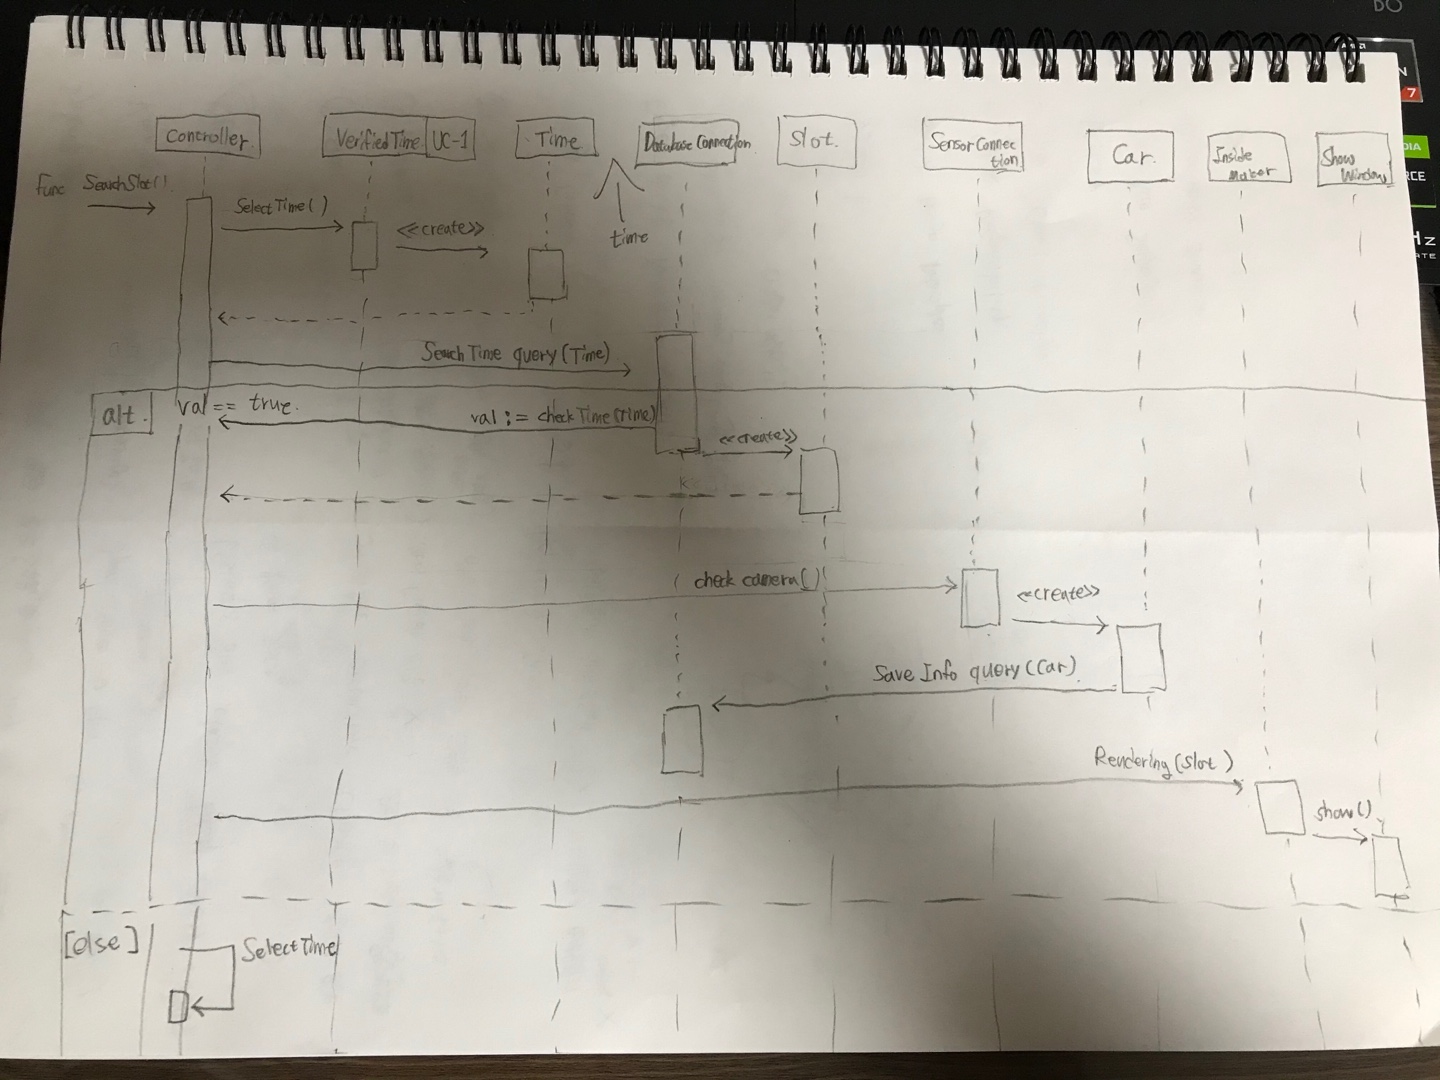 DO
Controller.
VerifiedTime
UC-1
Time.
Database Connection
Slot.
SensorConnec
tion
Car.
Inside
Maker
Show
Window
Func SearchSlot()
SelectTime()
<<create>>
time
Search Time query(Time)
alt.
val == true.
val := checkTime(Time)
<<create>>
check camera()
<<create>>
Save Info query(Car).
Rendering(Slot)
show()
[else]
SelectTime
7
Hz